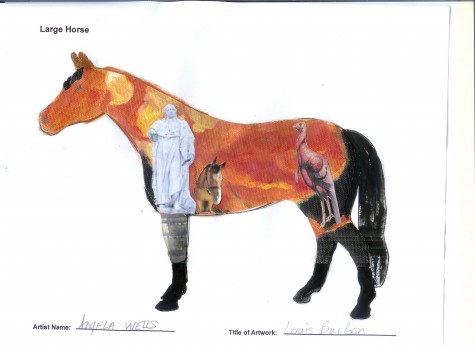 Large Horse
Artist Name: ANGELA WELLS
Title of Artwork: Louis Burbon